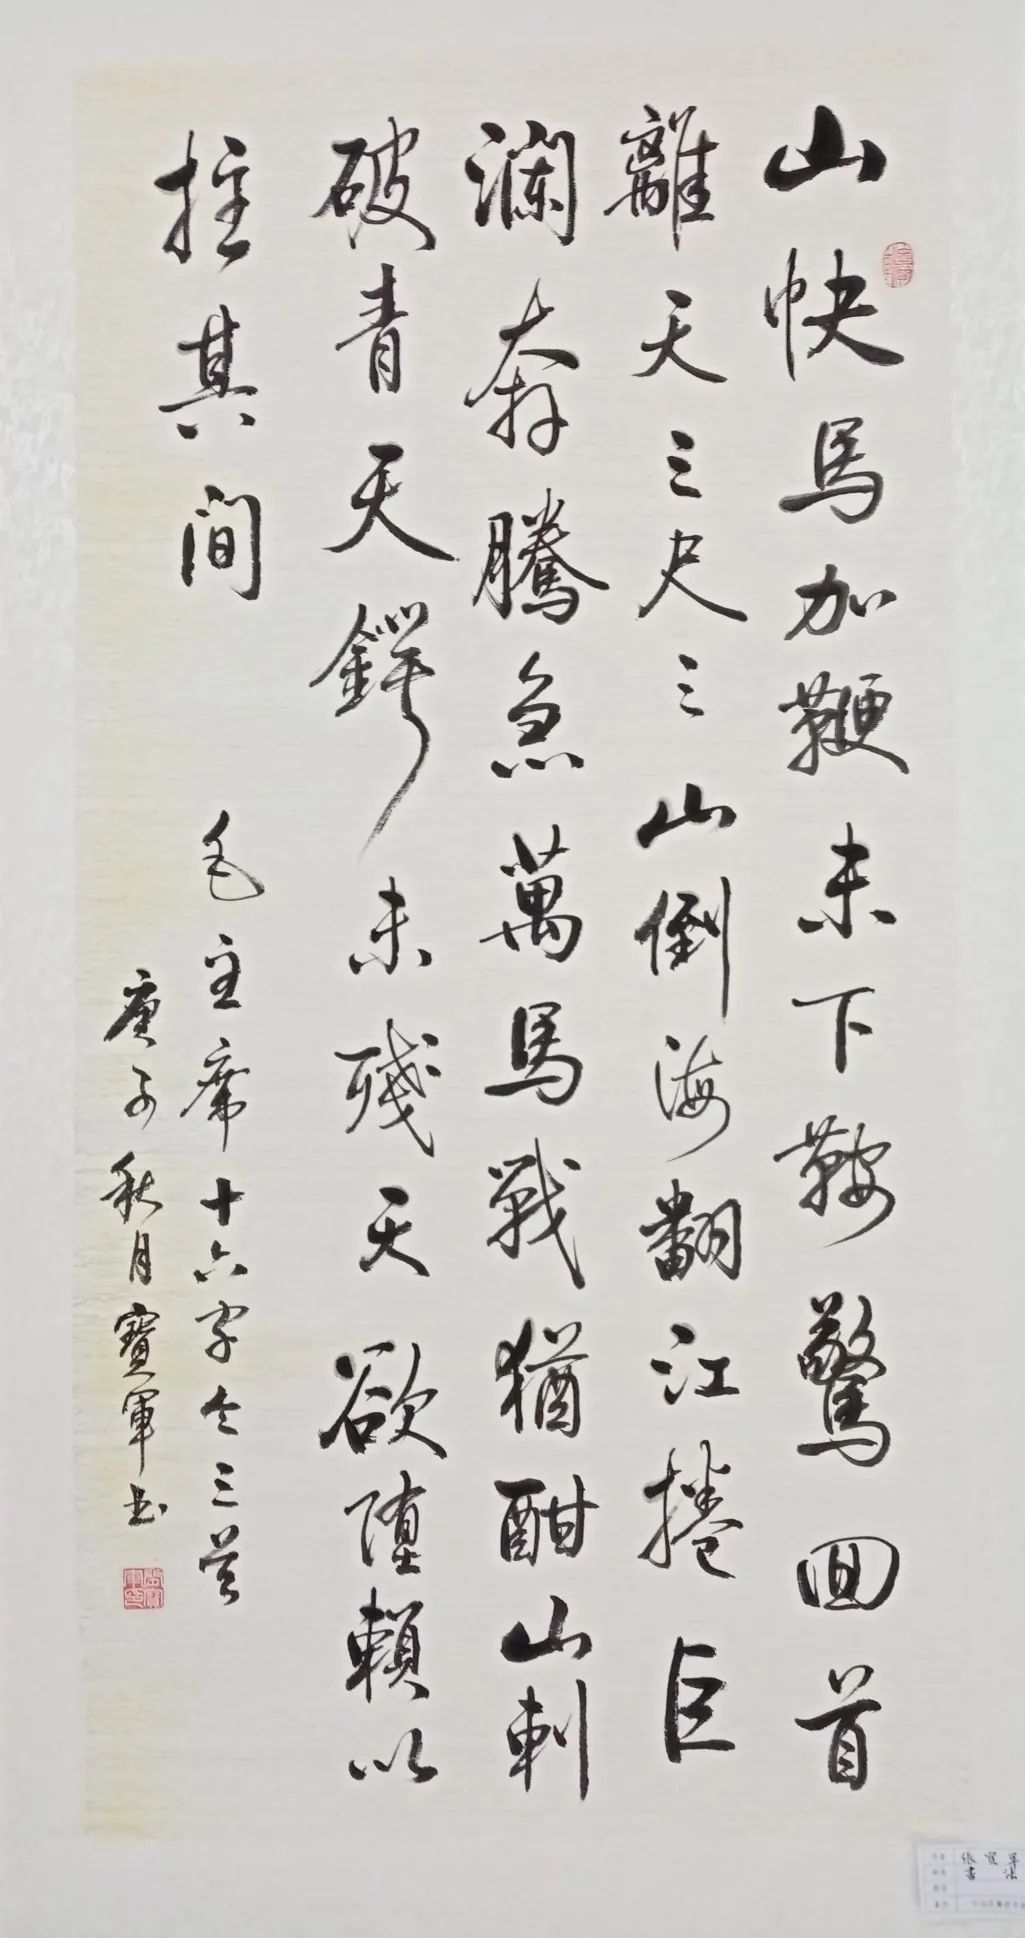 山快馬加鞭未下鞍驚回首
離天三尺三山倒海翻江捲巨
瀾奔騰急萬馬戰猶酣山刺
破青天鍔未殘天欲堕賴以
拄其间
毛主席十六字令三首
庚子秋月寶軍书